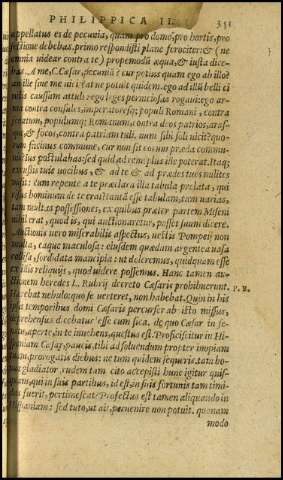 PHILIPPICA II. 351
appellatus es de pecunia, quam pro domo, pro hortis, pro
sectione debebas, primo respondisti plane ferociter: & (ne
omnia videar contra te) propemodũ æqua, & iusta dice-
bas. A me, C. Cæsar, pecuniã? cur potius quam ego ab illo?
an ille sine me vicit? at ne potuit quidem. ego ad illũ belli ci
vilis caussam attuli: ego leges perniciosas rogavi: ego ar-
ma contra consules, imperatoresq; populi Romani, contra
senatum, populumq; Romanum, contra deos patrios, aras-
q; & focos, contra patriam tuli. num sibi soli vicit? quo-
rum facinus commune, cur non sit eorum præda commu-
nis? ius postulabas: sed quid ad rem? plus ille poterat. Itaq;
excussis tuis vocibus, & ad te & ad prædes tuos milites
misit: cum repente a te præclara illa tabula prolata. qui
risus hominum de te erat? tantã esse tabulam, tam varias,
tam multas possessiones, ex quibus præter partem Miseni
nihil erat, quod is, qui auctionaretur, posset suum dicere.
Auctionis vero miserabilis aspectus: vestis Pompeii non
multa, eaque maculosa: eiusdem quædam argentea vasa
collisa, sordidata mancipia: ut doleremus, quidquam esse
ex illis reliquiis, quod videre possemus. Hanc tamen au-
ctionem heredes L. Rubrij decreto Cæsaris prohibuerunt. P. R.
Hærebat nebulo: quo se verteret, non habebat. Quin in his
ipsis temporibus domi Cæsaris percussor ab isto missus,
deprehensus dicebatur esse cum sica. de quo Cæsar in se-
natu, aperte in te invehens, questus est. Proficiscitur in Hi-
spaniam Cæsar, paucis tibi ad solvendum propter inopiam
tuam prorogatis diebus: ne tum quidem sequeris. tam bo-
nus gladiator, rudem tam cito accepisti? hunc igitur quis-
quam, qui in suis partibus, id est, in suis fortunis tam timi-
dus fuerit, pertimescat? Profectus est tamen aliquando in
Hispaniam: sed tuto, ut ait, pervenire non potuit. quonam
modo